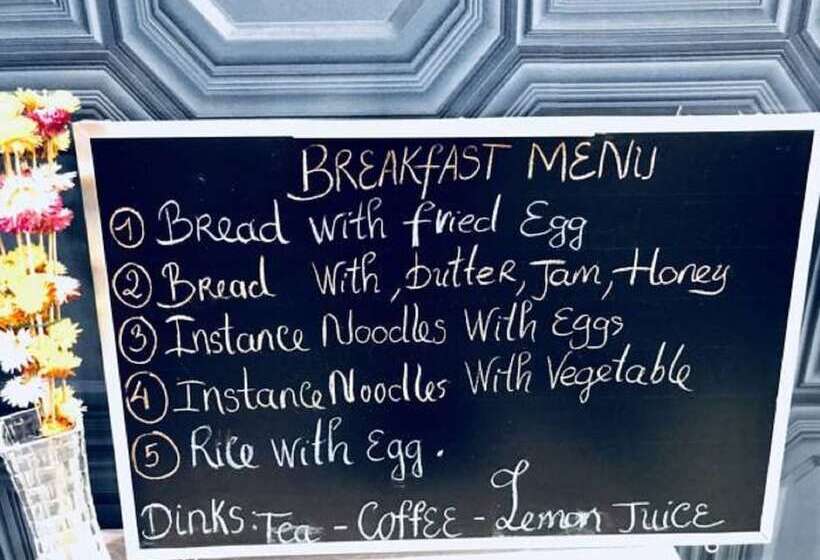 BREAKfAST MENU
① Bread with fried Egg
② Bread With, butter, Jam, Honey
③ Instance Noodles With Eggs
④ Instance Noodles With Vegetable
⑤ Rice with Egg.
Dinks: Tea - Coffee - Lemon Juice